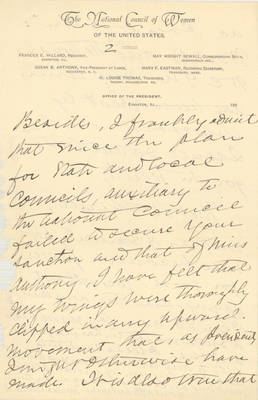 The National Council of Women
OF THE UNITED STATES.
2
FRANCES E. WILLARD, PRESIDENT,
EVANSTON, ILL.
MAY WRIGHT SEWALL, CORRESPONDING SEC'Y,
INDIANAPOLIS, IND.
SUSAN B. ANTHONY, VICE-PRESIDENT AT LARGE,
ROCHESTER, N. Y.
MARY F. EASTMAN, RECORDING SECRETARY,
TEWKSBURY, MASS.
M. LOUISE THOMAS, TREASURER,
OFFICE OF THE PRESIDENT.
EVANSTON, ILL., 189
Besides, I frankly admit
that since the plan
for State and local
Councils, auxiliary to
the National Council
failed to secure your
sanction and that of Miss
Anthony, I have felt that
my wings were thoroughly
clipped in any upward
movement that, as President
I might otherwise have
made. It is also true that